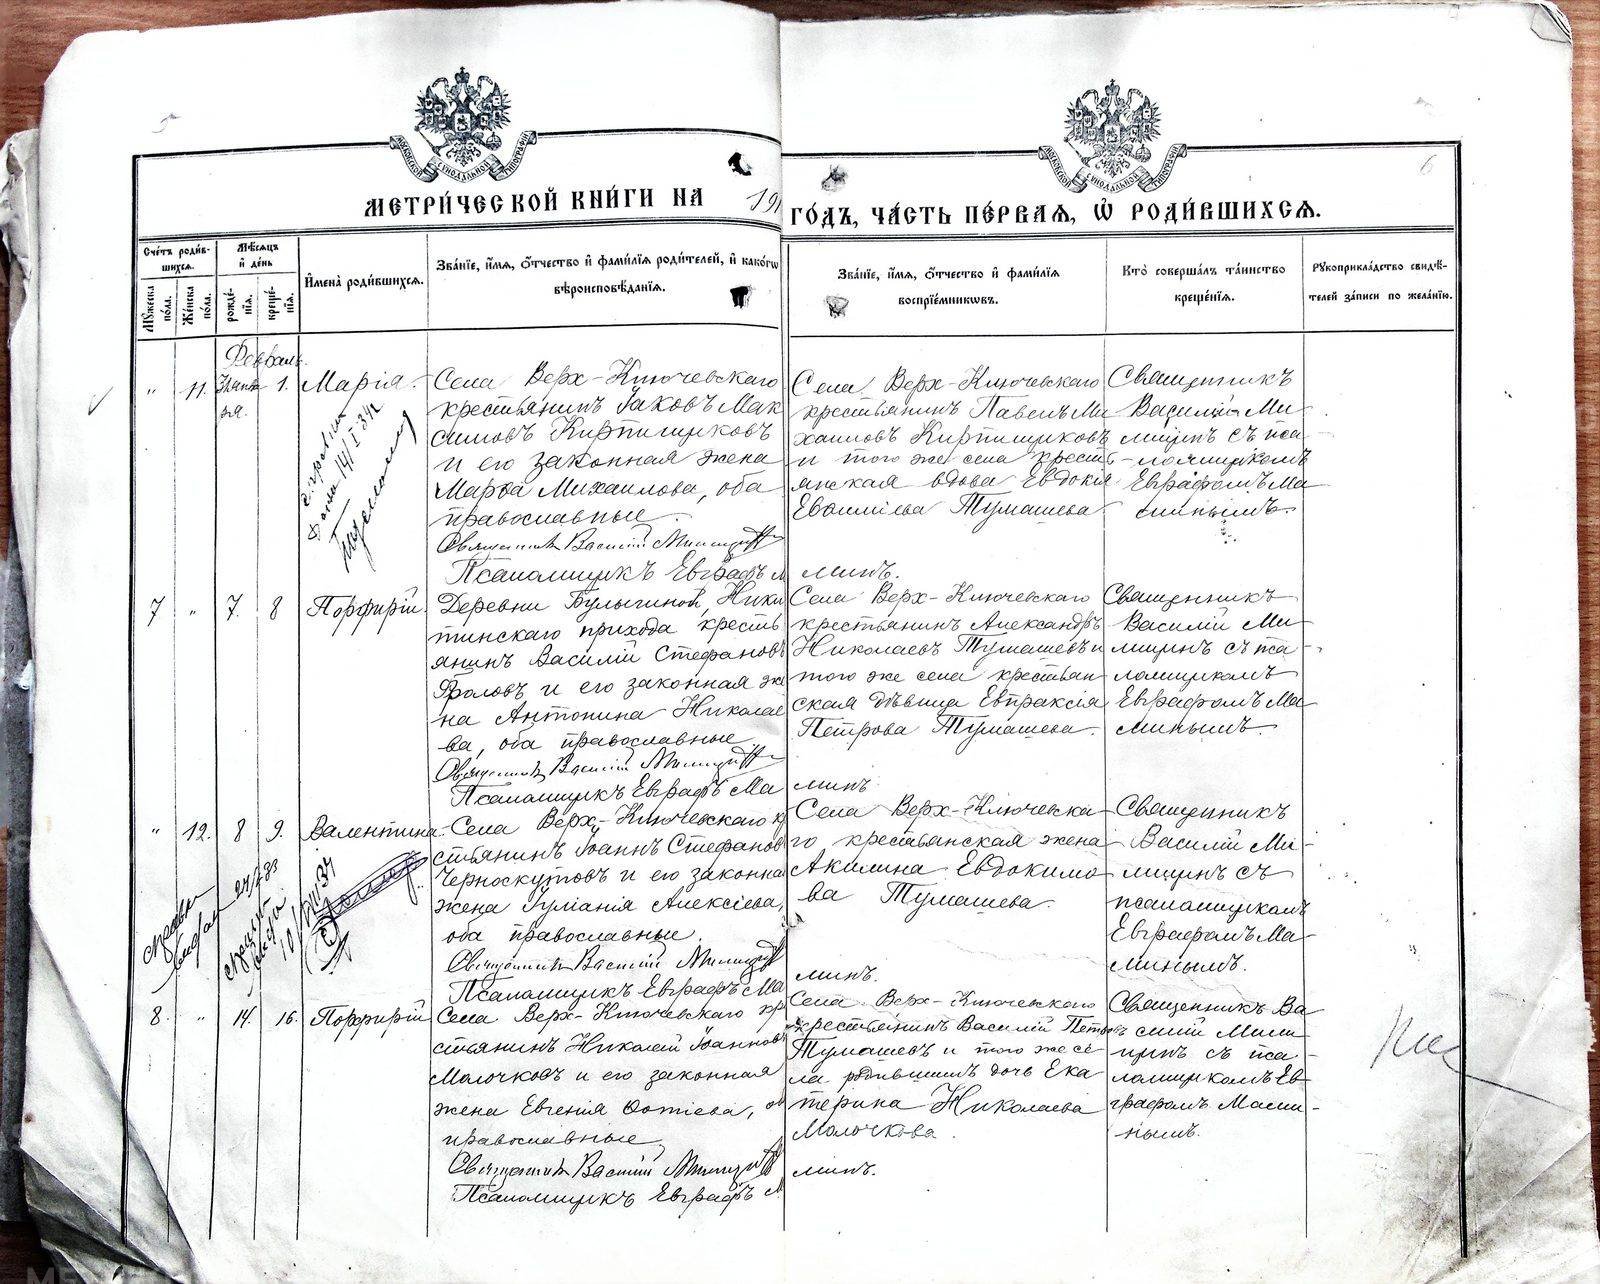 5
6
МОСКОВСКОЙ СУНОДАЛЬНОЙ ТИПОГРАФІИ
МОСКОВСКОЙ СУНОДАЛЬНОЙ ТИПОГРАФІИ
МЕТРИ́ЧЕСКОЙ КНИ́ГИ НА 191
ГО́ДЪ, ЧА́СТЬ ПЕ́РВАЯ, Ѡ РОДИ́ВШИХСЯ.
Сче́тъ роди́в-
шихся.
Му́жеска по́ла.
Же́нска по́ла.
Мѣ́сяцъ
и де́нь
рожде́-
нїя.
креще́-
нїя.
Имена̀ роди́вшихся.
Зва́нїе, и́мя, о́тчество и фами́лїя роди́телей, и како́гѡ
вѣроисповѣ́данїя.
Зва́нїе, и́мя, о́тчество и фами́лїя
воспрїе́мникѡвъ.
Кто̀ соверша́лъ та́инство
креще́нїя.
Рукоприкла́дство свидѣ́-
телей за́писи по жела́нїю.
Февраль.
" 11. Января. 1. Марія.
Села Верх-Ключевскаго
крестьянинъ Іаковъ Мак
симовъ Кирпищиковъ
и его законная жена
Марѳа Михаилова, оба
православные.
Священник Василій Милицин
Псаломщикъ Евграфъ М
Села Верх-Ключевскаго
крестьянинъ Павелъ Ми
хаиловъ Кирпищиковъ
и того же села кресть-
янская вдова Евдокія
Евсигніева Тумашева
минъ.
Священникъ
Василій Ми-
лицинъ съ пса-
ломщикомъ
Евграфомъ Ма
минымъ.
7 " 7. 8 Порфирій.
Деревни Булыгиной, Ники
тинскаго прихода кресть
янинъ Василій Стефановъ
Фроловъ и его законная же
на Антонина Николае
ва, оба православные
Священник Василій Милицин
Псаломщикъ Евграфъ Ма
Села Верх-Ключевскаго
крестьянинъ Александръ
Николаевъ Тумашевъ и
того же села крестьян
ская дѣвица Евпраксія
Петрова Тумашева.
минъ
Священникъ
Василій Ми-
лицинъ съ пса-
ломщикомъ
Евграфомъ Ма
минымъ.
" 12. 8 9. Валентина.
Села Верх-Ключевскаго кр
стьянинъ Іоаннъ Стефанов
Черноскутовъ и его законна
жена Іуліанія Алексіева,
оба православные.
Священник Василій Милицин
Псаломщикъ Евграфъ Ма
Села Верх-Ключевска-
го крестьянская жена
Акилина Евдокимо
ва Тумашева.
минъ.
Священникъ
Василій Ми-
лицинъ съ
псаломщикомъ
Евграфомъ Ма-
минымъ.
8. " 14. 16. Порфирій
Села Верх-Ключевскаго кр
стьянинъ Николай Іоаннов
Молочковъ и его законная
жена Евгенія Фотіева, о
православные
Священник Василій Милицин
Псаломщикъ Евграфъ М
Села Верх-Ключевскаго
крестьянинъ Василій Петровъ
Тумашевъ и того же се-
ла родившимъ дочь Ека
терина Николаева
Молочкова.
минъ.
Священникъ Ва
силій Мили
цинъ съ пса-
ломщикомъ Ев-
графомъ Мами-
нымъ.